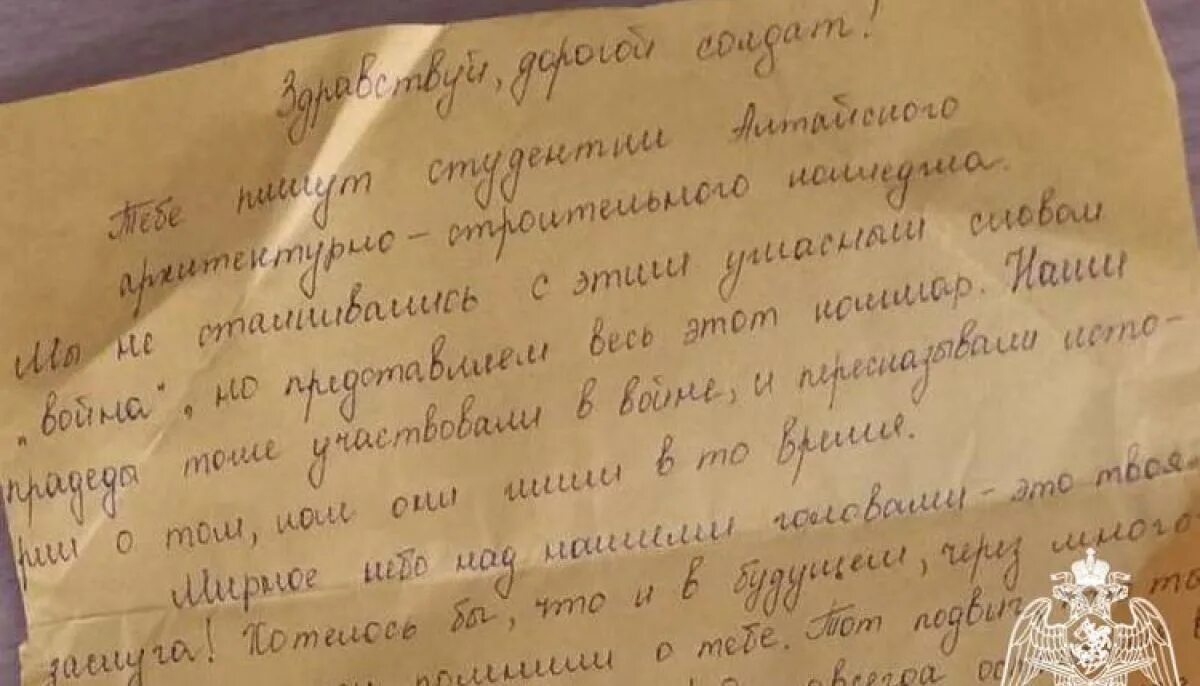 Здравствуй, дорогой солдат!
Тебе пишут студентки Алтайского
архитектурно-строительного колледжа.
Мы не сталкивались с этим ужасным словом
„война", но представляем весь этот кошмар. Наши
прадеды тоже участвовали в войне, и пересказывали исто-
рии о том, как они жили в то время.
Мирное небо над нашими головами - это твоя
заслуга! Хотелось бы, что и в будущем, через много
помнили о тебе. Тот подвиг
всегда